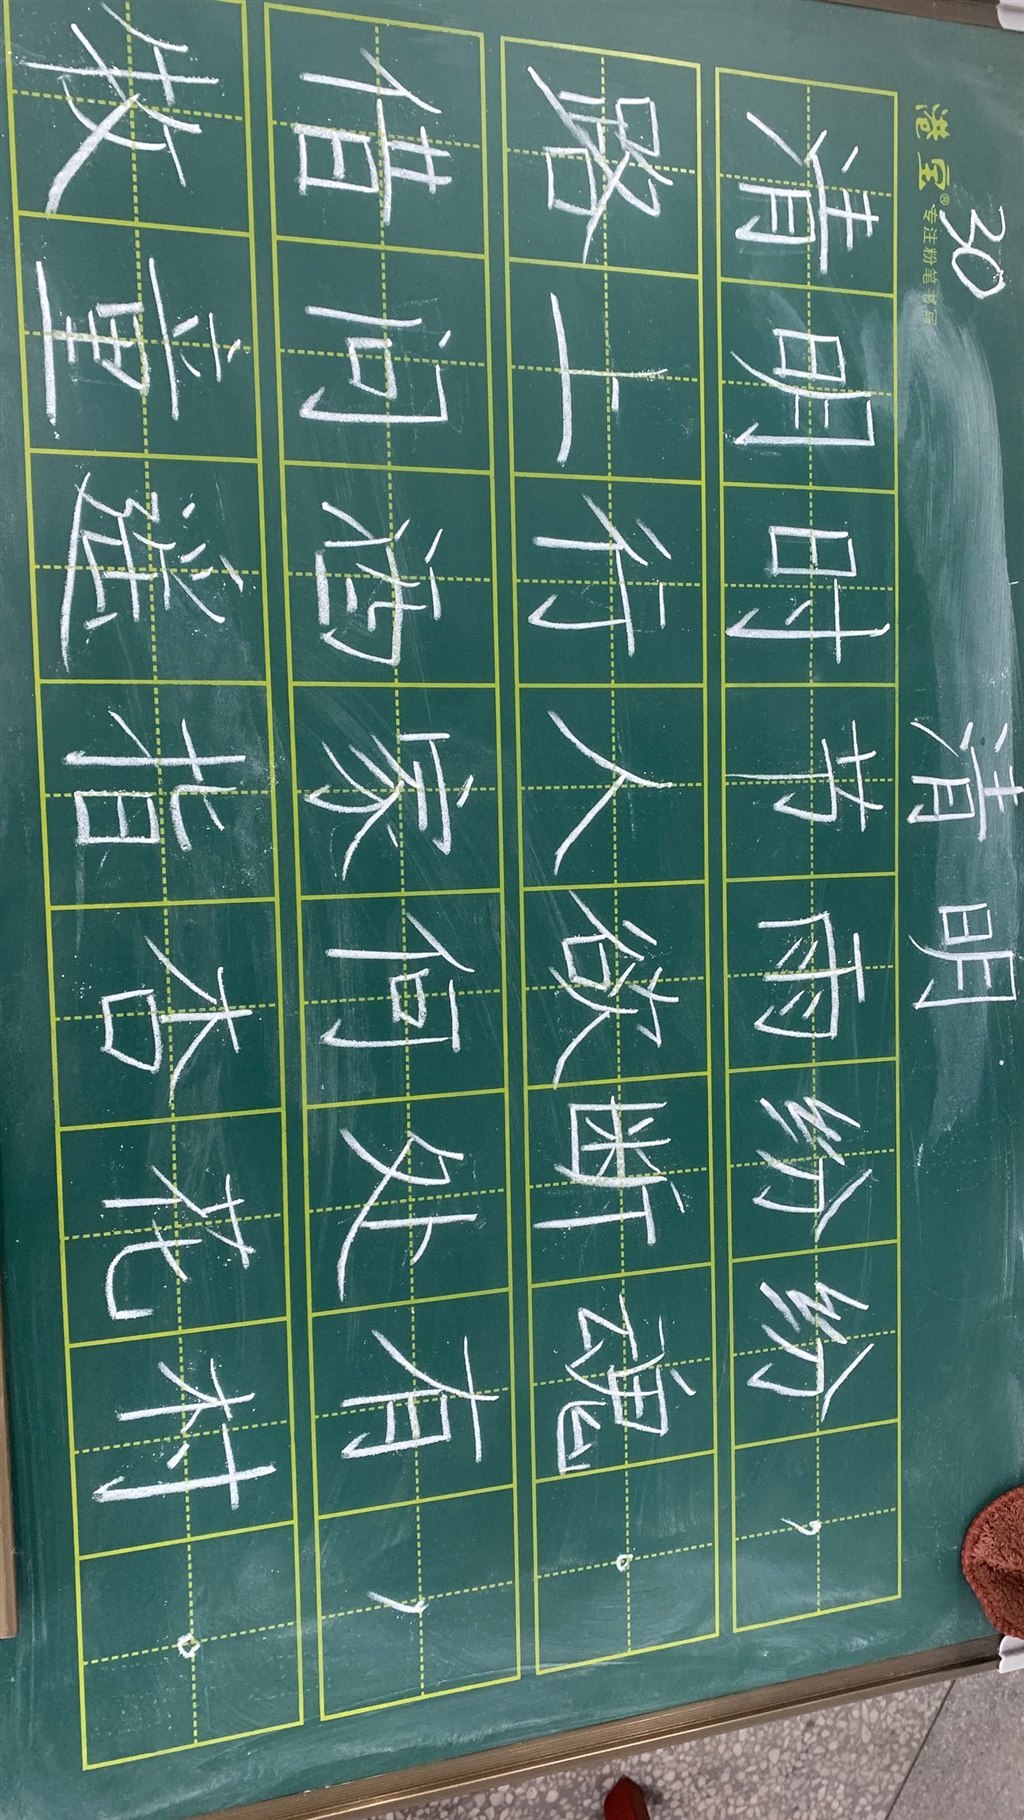 港宝® 专注粉笔书写
30
清明
清明时节雨纷纷，
路上行人欲断魂。
借问酒家何处有，
牧童遥指杏花村。